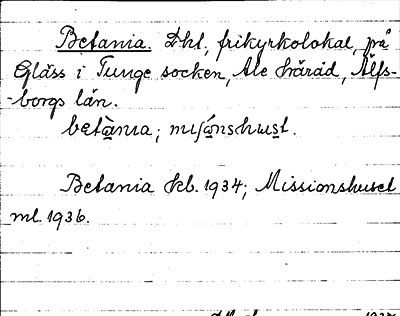 Betania. Dkl, frikyrkolokal, på
Gläss i Tunge socken, Ale härad, Älfs-
-borgs län.
betània;
Betania Kl. 1934; Missionshuset
ml. 1936.